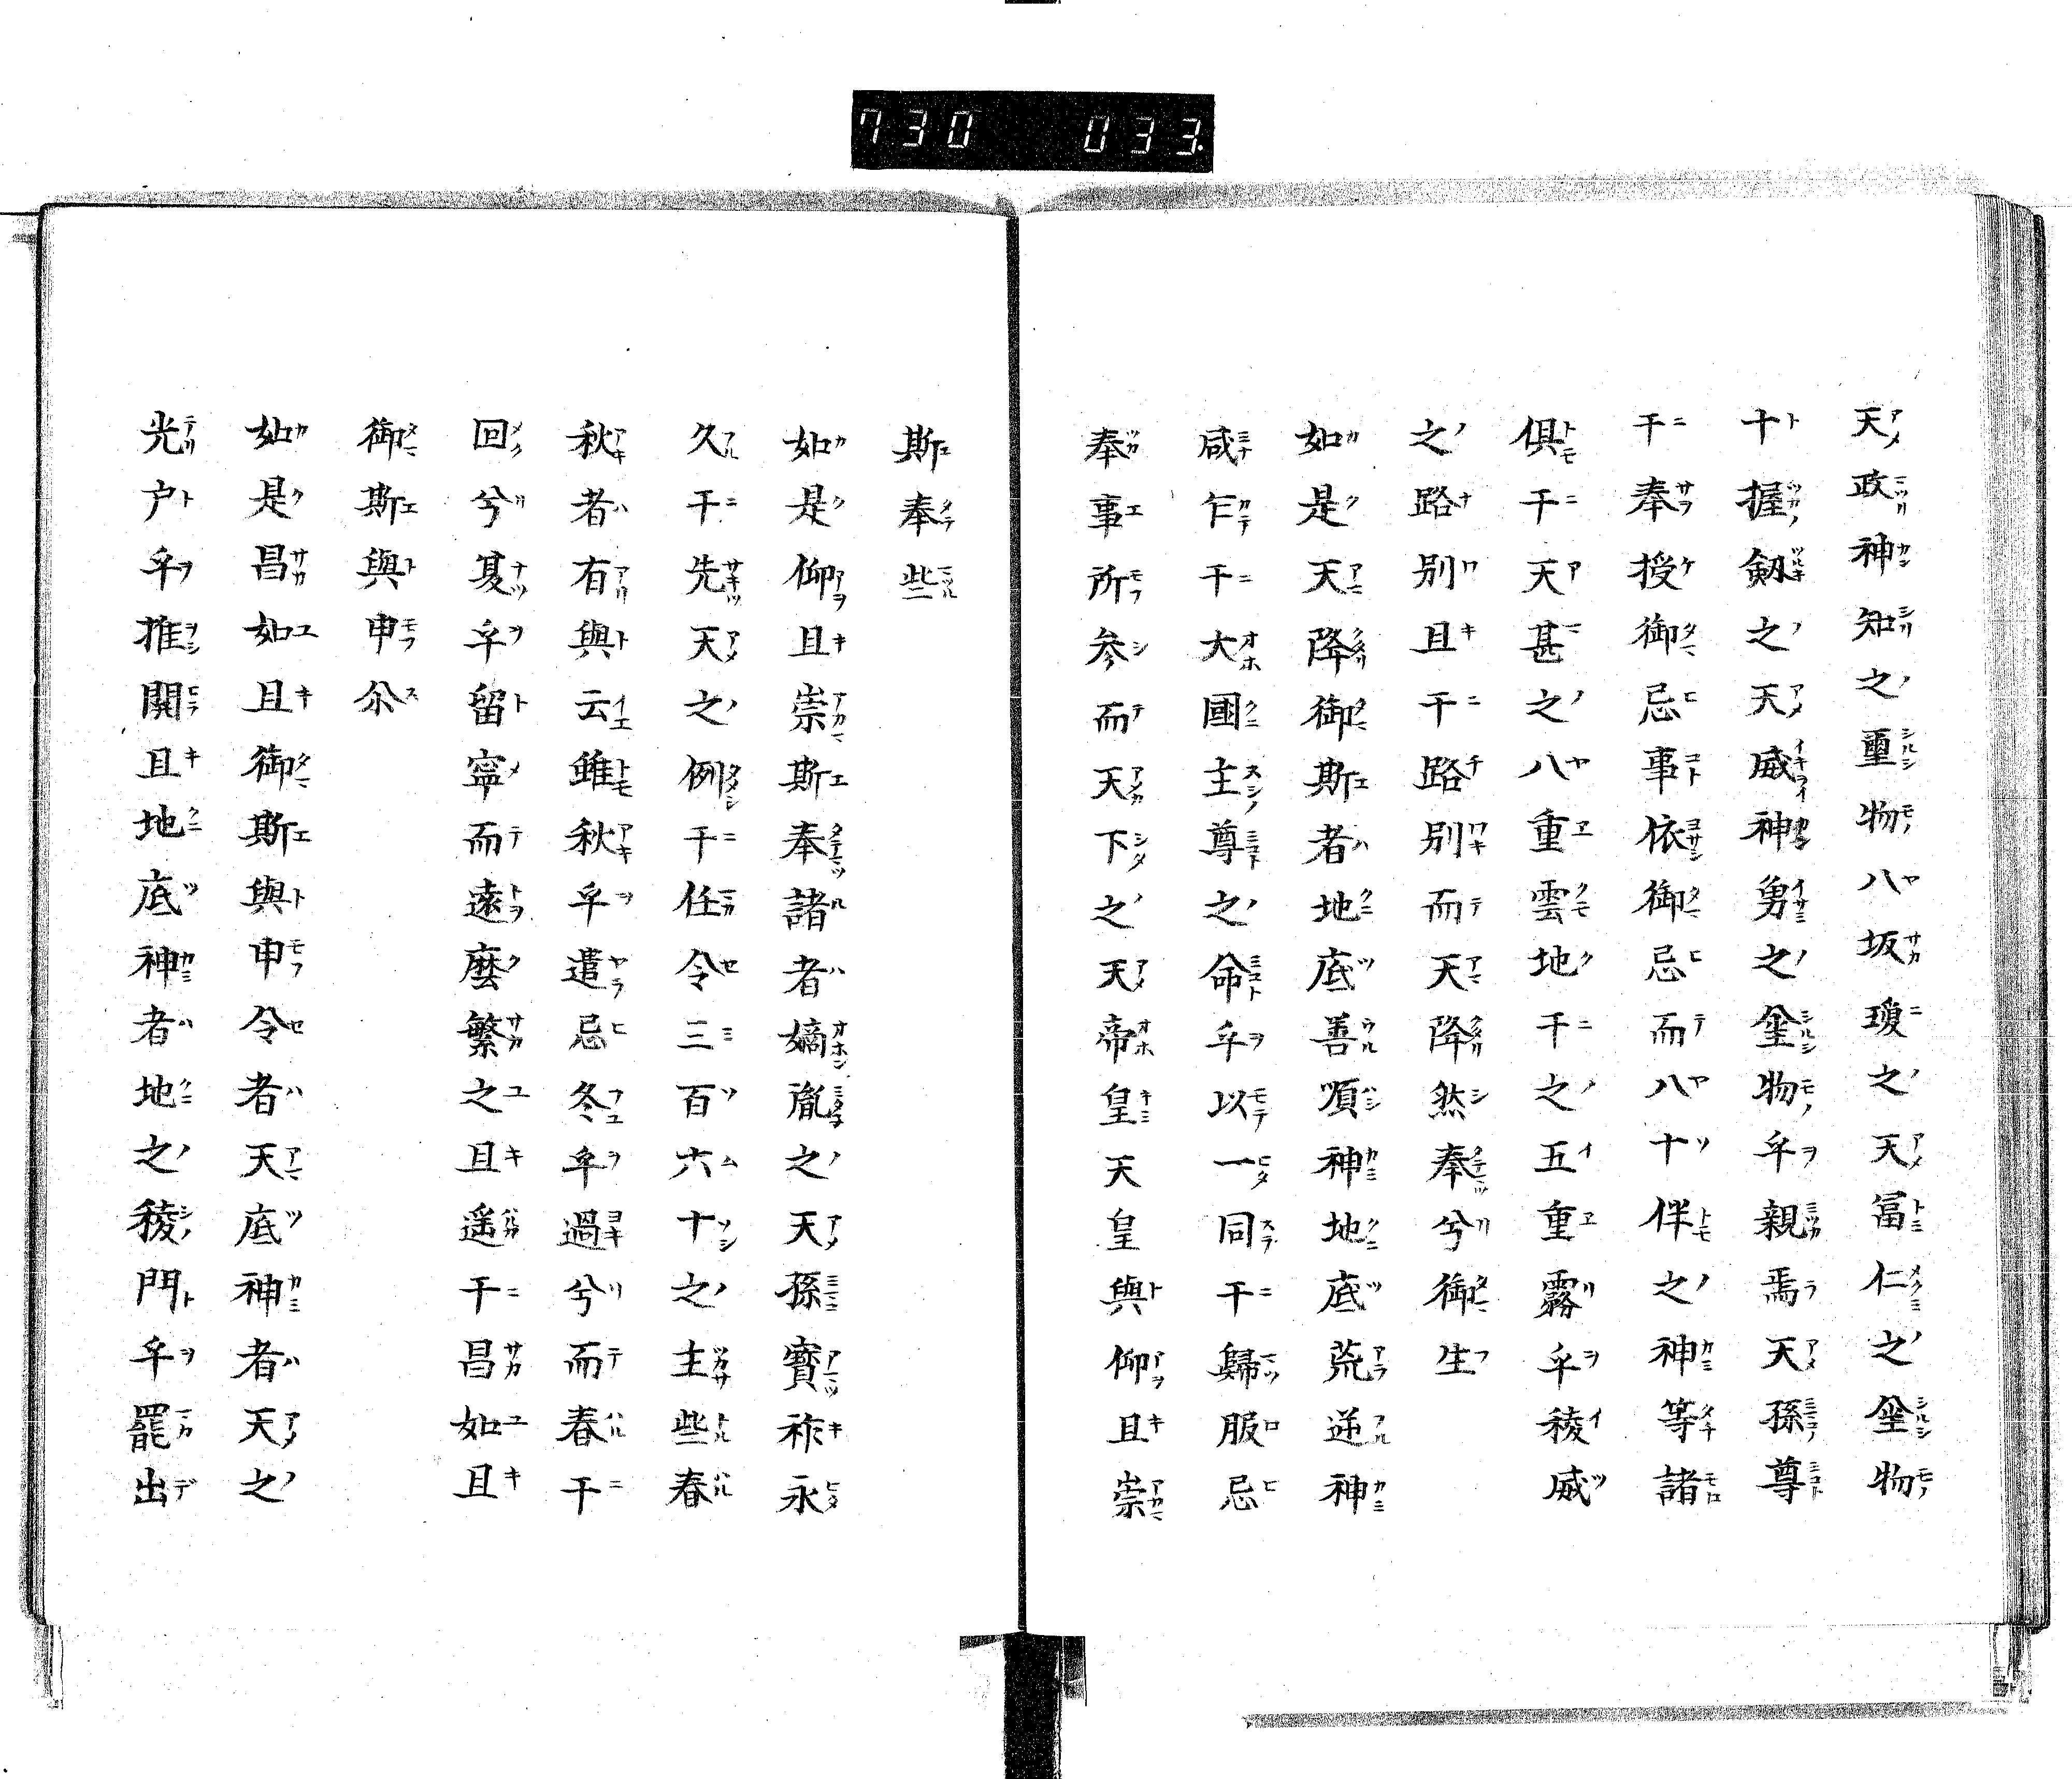 730 033
天政神知之璽物八坂瓊之天冨仁之璽物
十握劔之天威神勇之璽物乎親焉天孫尊
于奉授御忌事依御忌而八十伴之神等諸
俱于天甚之八重雲地于之五重霧乎稜威
之路別且于路別而天降然奉兮御生
如是天降御斯者地底善順神地底荒逆神
咸乍于大國主尊之命乎以一同于歸服忌
奉事所参而天下之天帝皇天皇與仰且崇
斯奉些
如是仰且崇斯奉諸者嫡胤之天孫寶祚永
久于先天之例于任令三百六十之主些春
秋者有與云雖秋乎遣忌冬乎過兮而春于
回兮夏乎留寧而遠麼繁之且遥于昌如且
御斯與申尒
如是昌如且御斯與申令者天底神者天之
光户乎推開且地底神者地之稜門乎罷出